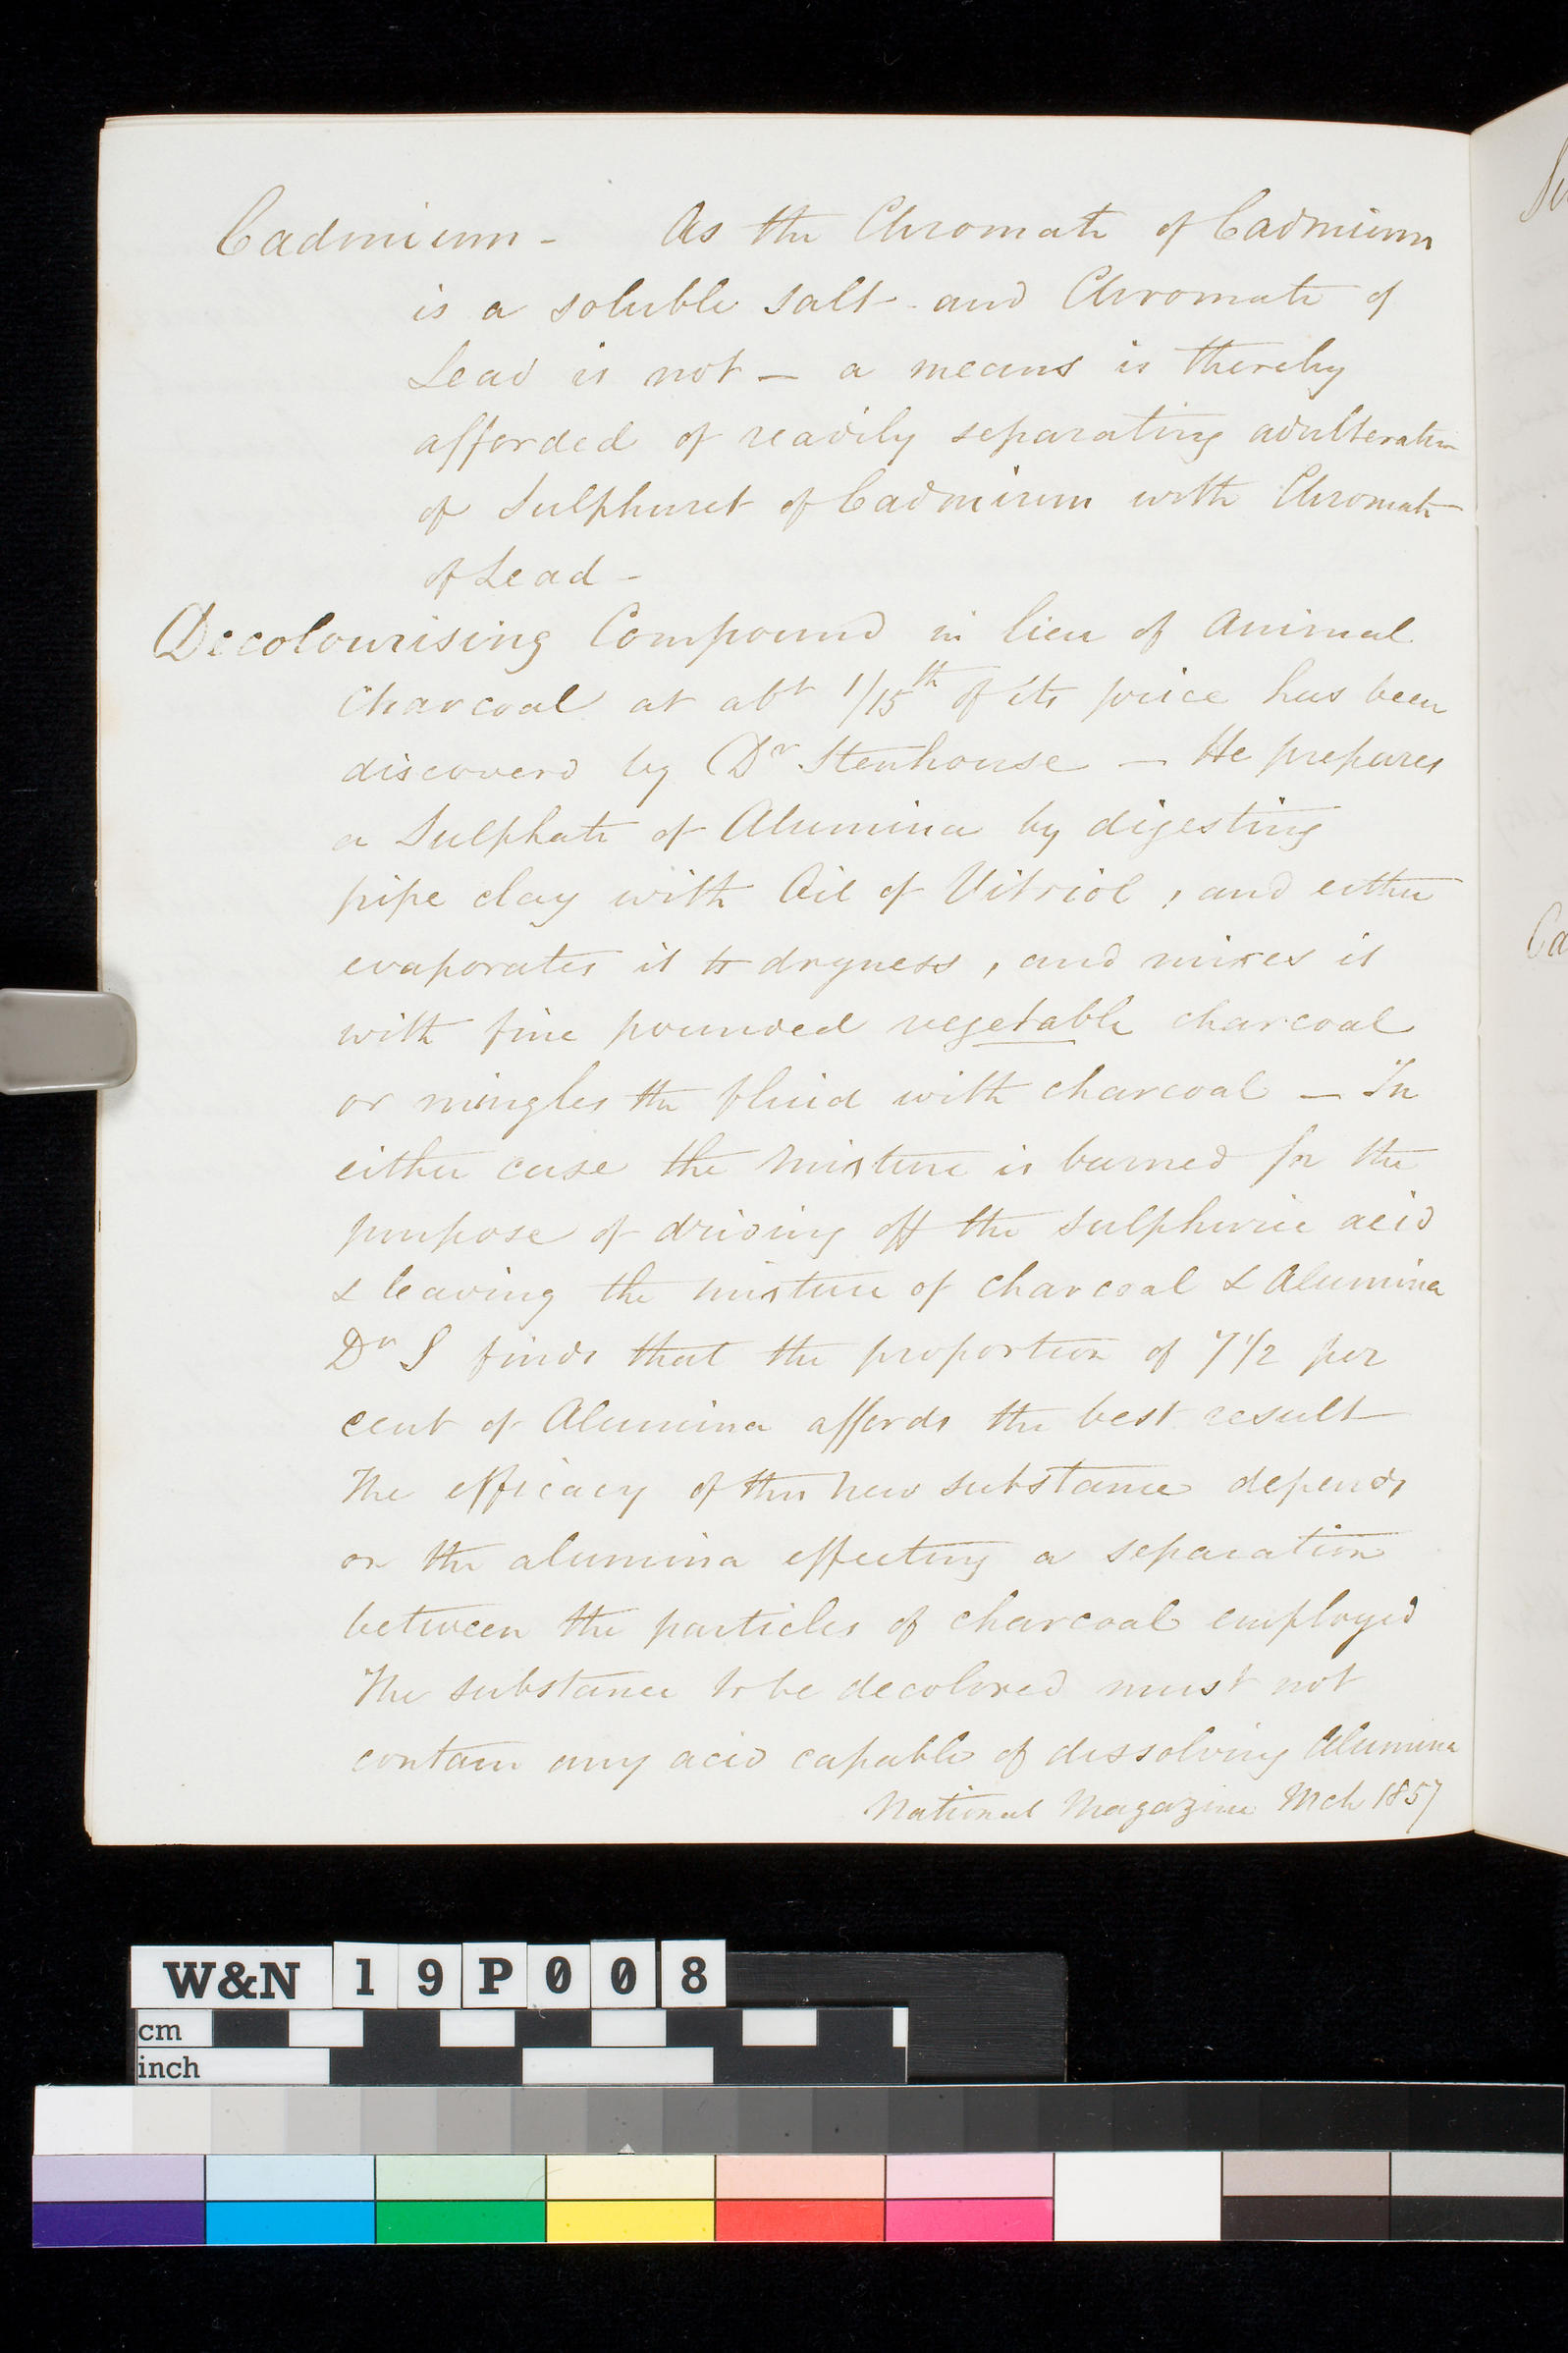 Cadmium - As the Chromate of Cadmium
is a soluble salt - and Chromate of
Lead is not - a means is thereby
afforded of readily separating adulteration
of Sulphuret of Cadmium with Chromate
of Lead -
Decolourising Compound in lieu of Animal
Charcoal at abt 1/15th of its price has been
discoverd by Dr Stenhouse - He prepares
a Sulphate of Alumina by digesting
pipe clay with Oil of Vitriol, and either
evaporates it to dryness, and mixes it
with fine pounded vegetable charcoal
or mingles the fluid with charcoal - In
either case the mixture is burned for the
purpose of driving off the sulphuric acid
& leaving the mixture of charcoal & Alumina
Dr S finds that the proportion of 7 1/2 per
cent of Alumina affords the best result
The efficacy of this new substance depends
on the alumina effecting a separation
between the particles of charcoal employed
The substance to be decolored must not
contain any acid capable of dissolving Alumina
National Magazine Mch 1857
Ca
W&N 19P008
cm
inch